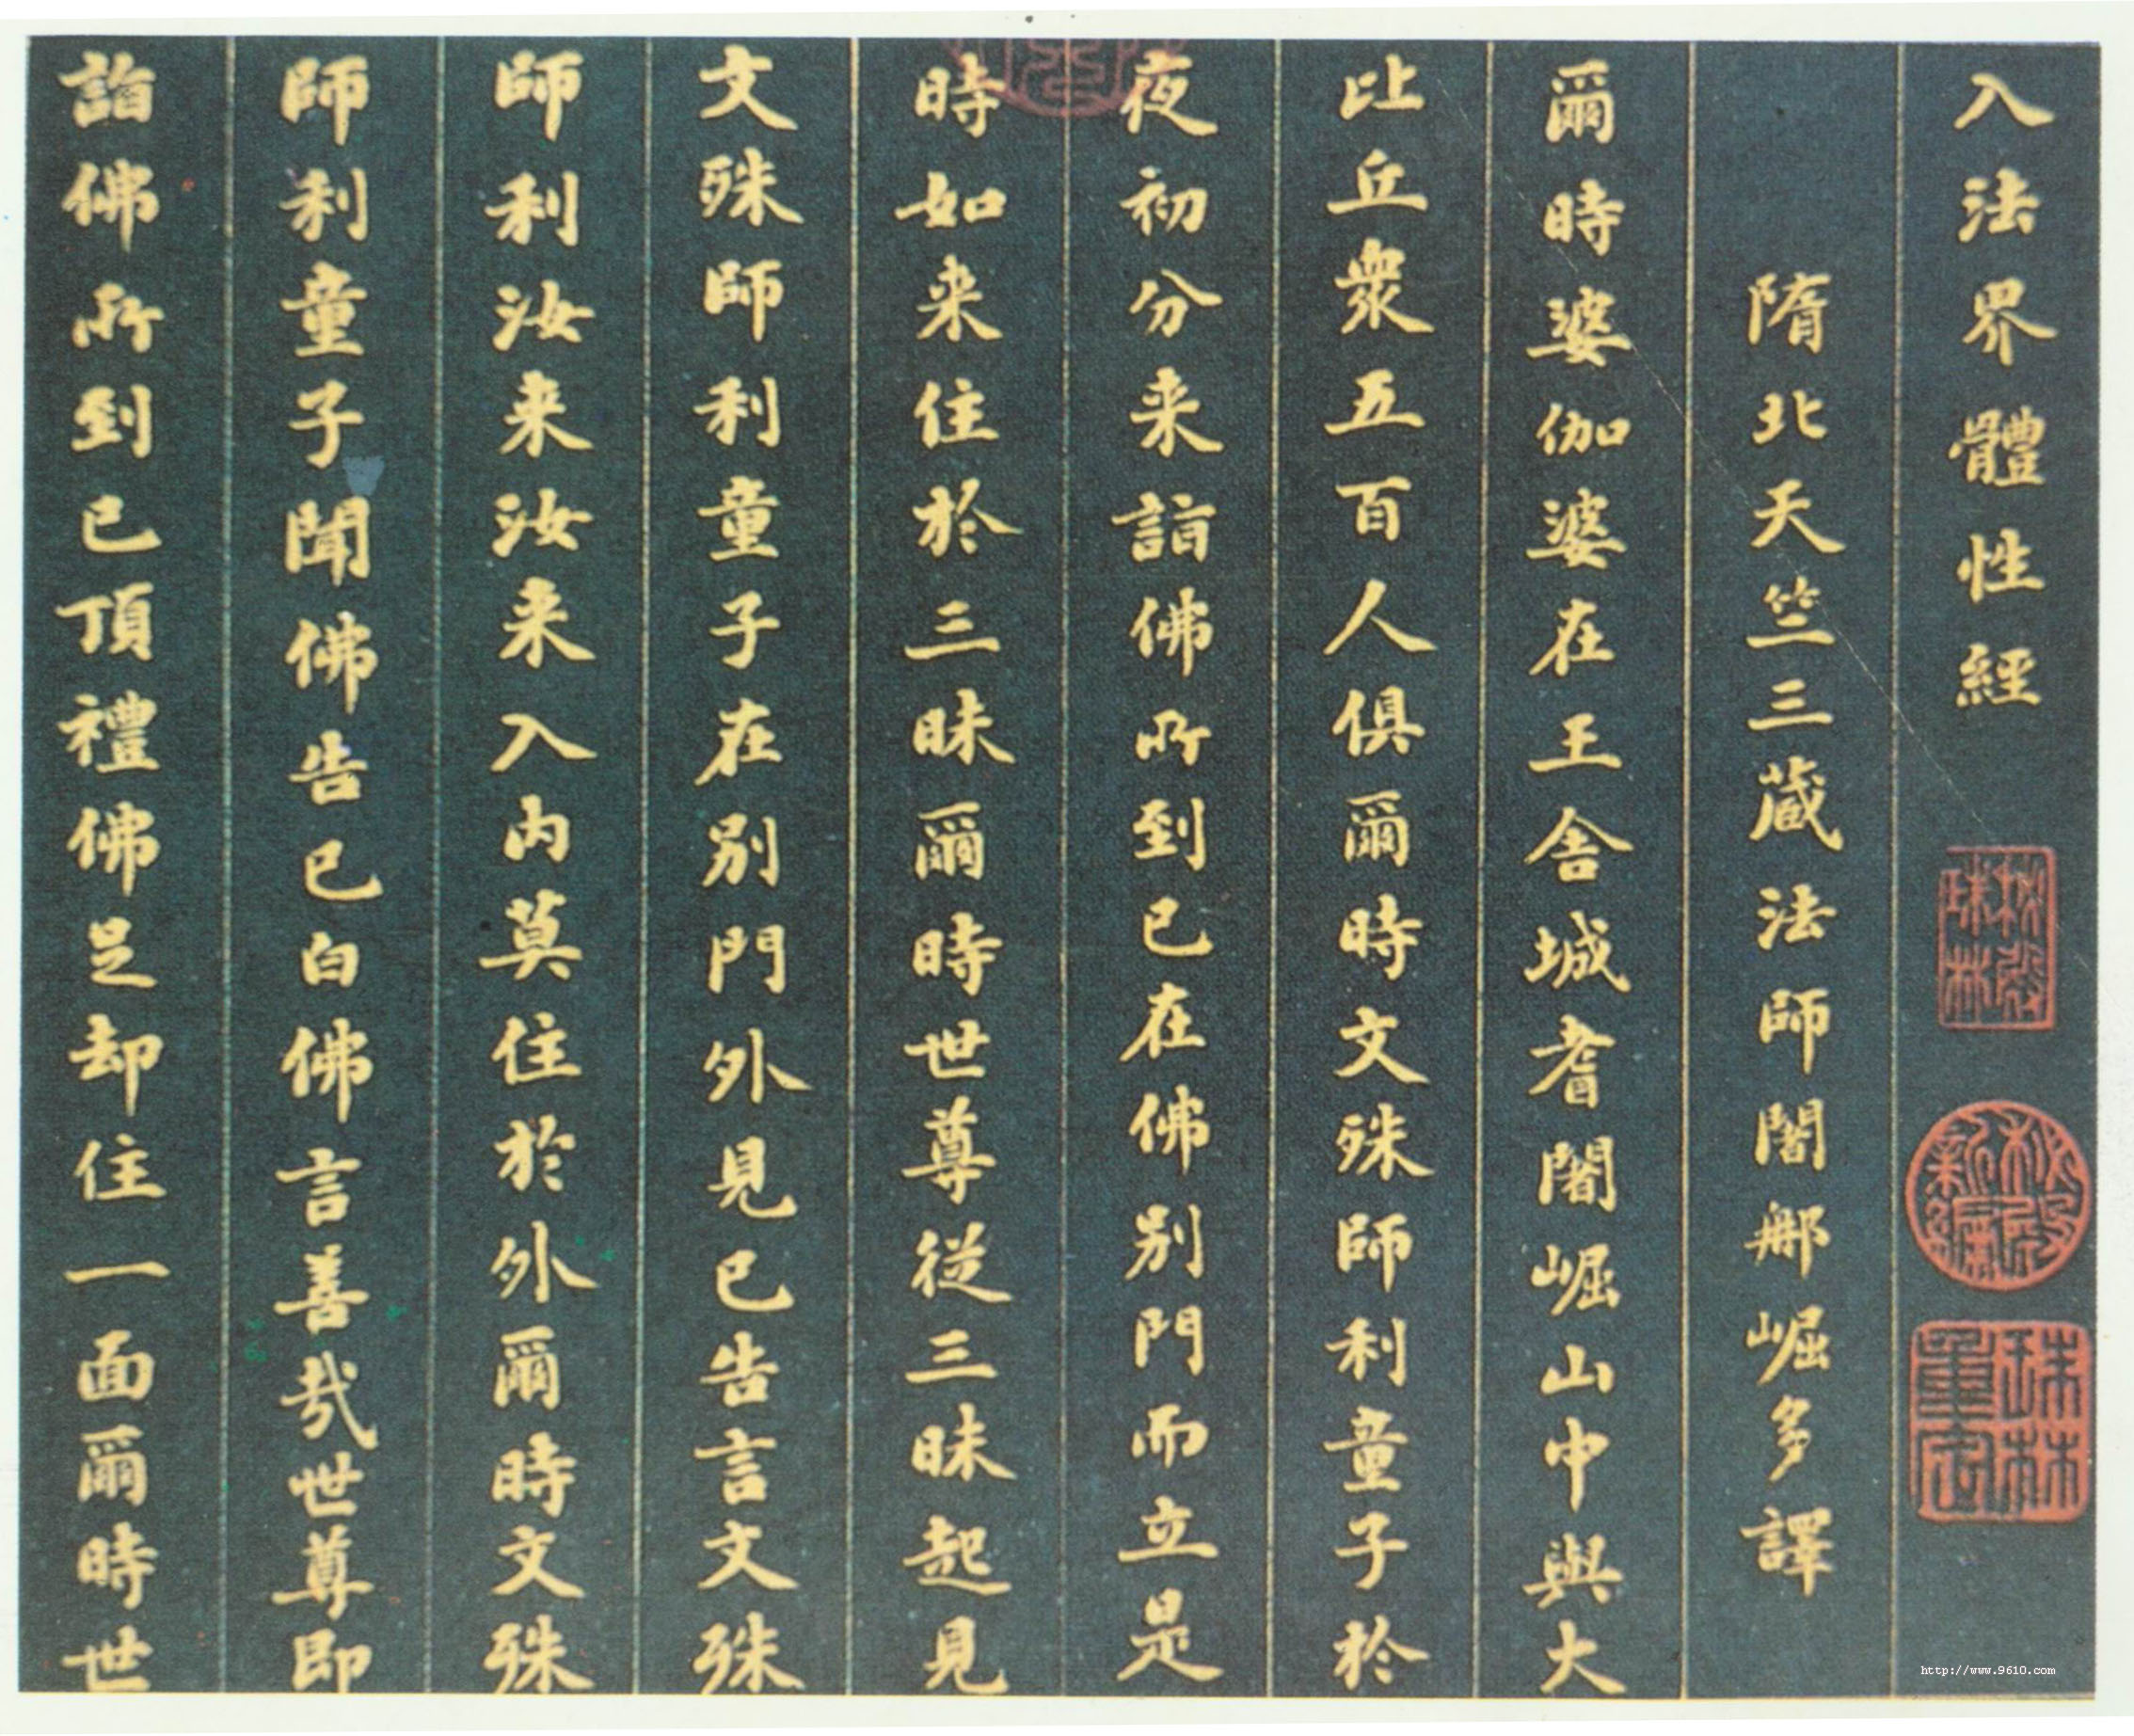 入法界體性經
隋北天竺三藏法師闍那崛多譯
爾時婆伽婆在王舍城耆闍崛山中與大
比丘衆五百人俱爾時文殊師利童子於
夜初分来詣佛所到已在佛別門而立是
時如来住於三昧爾時世尊從三昧起見
文殊師利童子在別門外見已告言文殊
師利汝来汝来入内莫住於外爾時文殊
師利童子聞佛告已白佛言善哉世尊即
詣佛所到已頂禮佛足却住一面爾時世
珠林
重定
http://www.9610.com